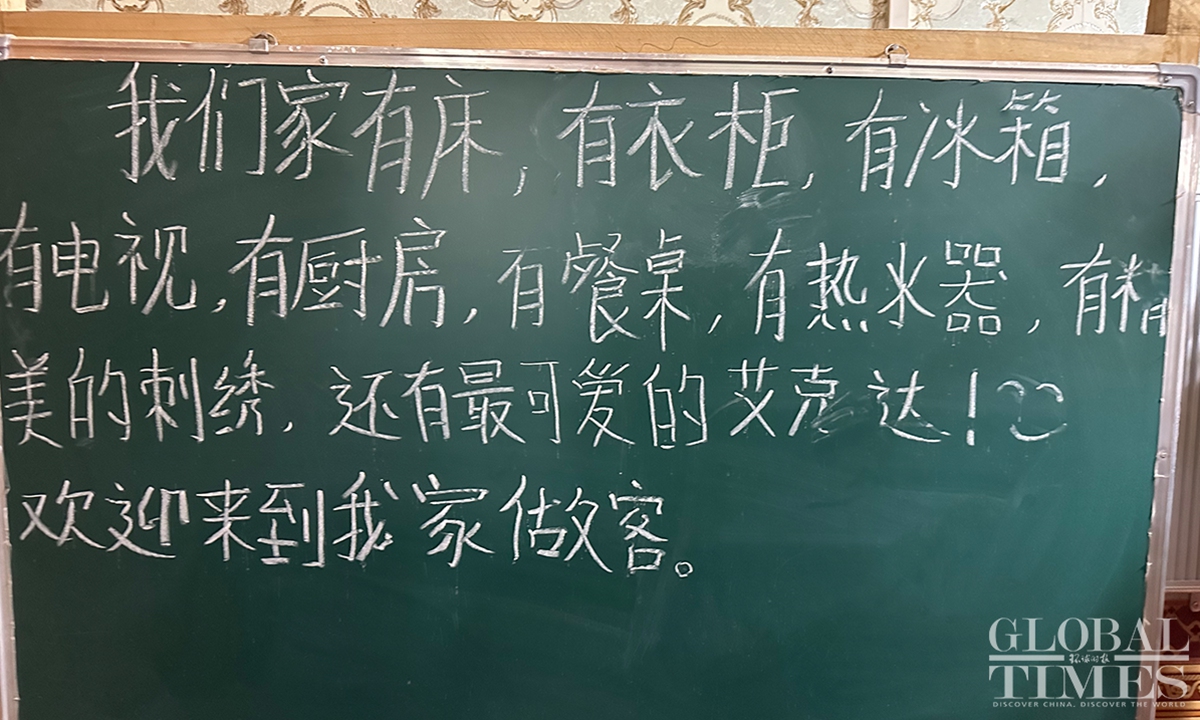 我们家有床，有衣柜，有冰箱，
有电视，有厨房，有餐桌，有热水器，有精
美的刺绣，还有最可爱的艾克达！
欢迎来到我家做客。
GLOBAL
环球时报
TIMES
DISCOVER CHINA, DISCOVER THE WORLD